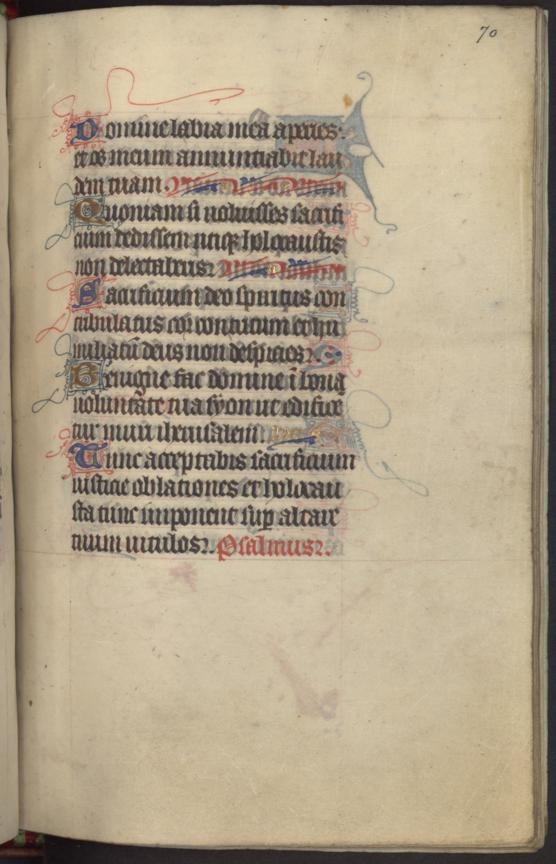 70
Domine labia mea aperies:
et os meum annunciabit lau
dem tuam
Quoniam si uoluisses sacrifi
cium dedissem utiqꝫ holocaustis
non delectaberis
Sacrificium deo spiritus con
tribulatus cor contritum et hu
miliatū deus non despicies
Benigne fac domine ī bona
uoluntate tua syon ut edifice
tur muri iherusalem.
Tunc acceptabis sacrificium
iusticie oblationes et holocau
sta tunc imponent suꝑ altare
tuum uitulos. Psalmus